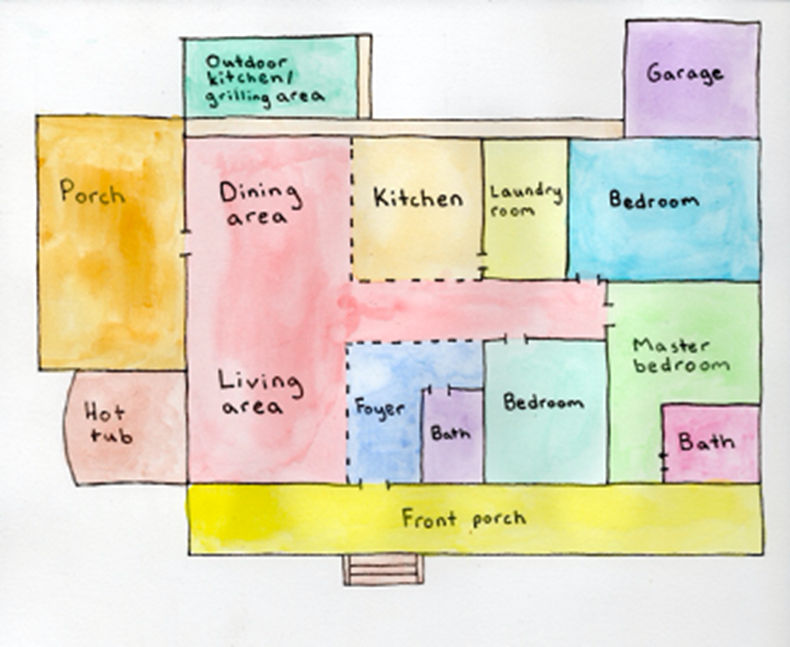 Outdoor
kitchen/
grilling area
Garage
Porch
Dining
area
Kitchen
Laundry
room
Bedroom
Living
area
Master
bedroom
Hot
tub
Foyer
Bath
Bedroom
Bath
Front porch